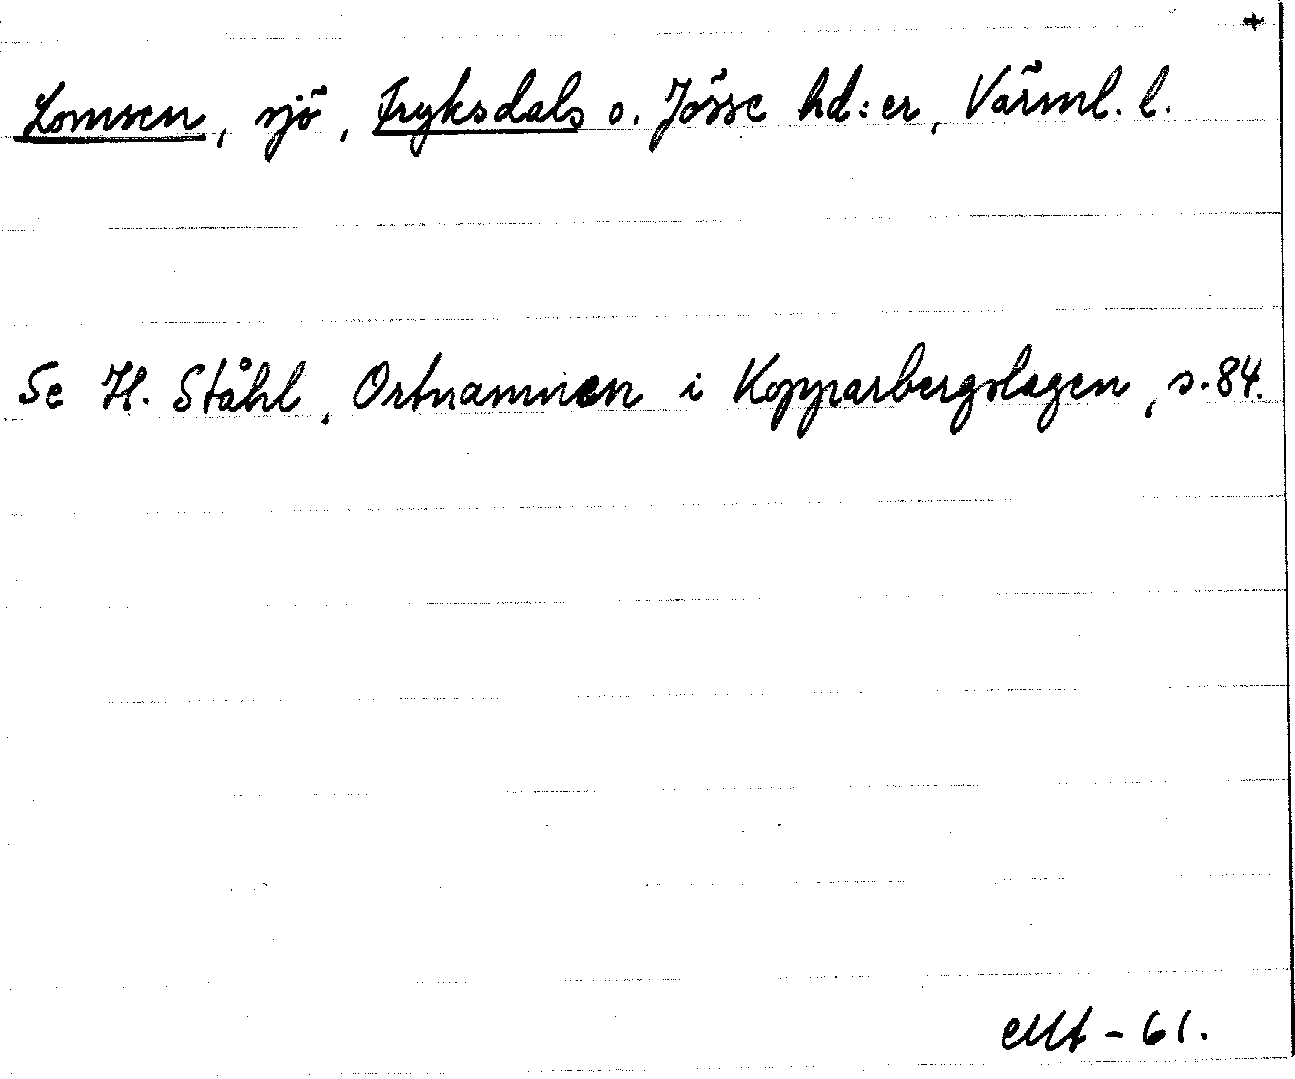 +
Lomsen, sjö, Fryksdals o. Jösse hd:er, Värml. l.
Se H. Ståhl, Ortnamnen i Kopparbergslagen, s. 84.
-61.